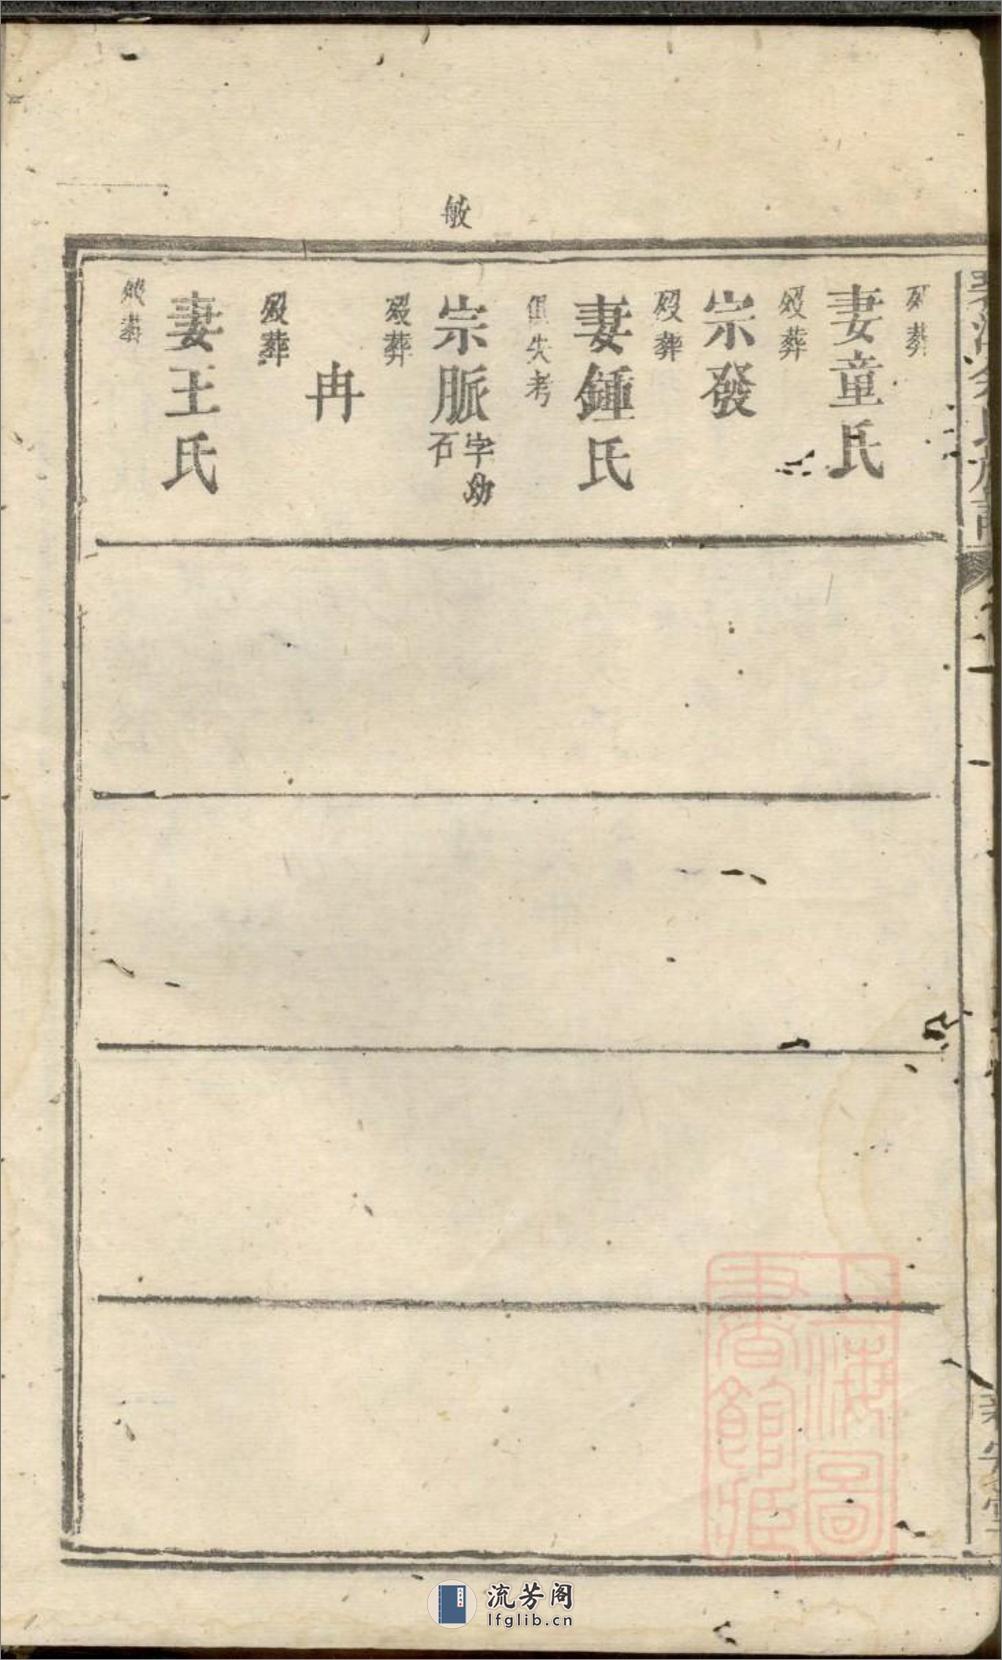 敏
歿葬
妻童氏
歿葬
宗發
歿葬
妻鍾氏
俱失考
宗脈 字幼石
歿葬
冉
歿葬
妻王氏
歿葬
余氏族譜
新安堂
上海圖
書館藏
流芳阁
lfglib.cn